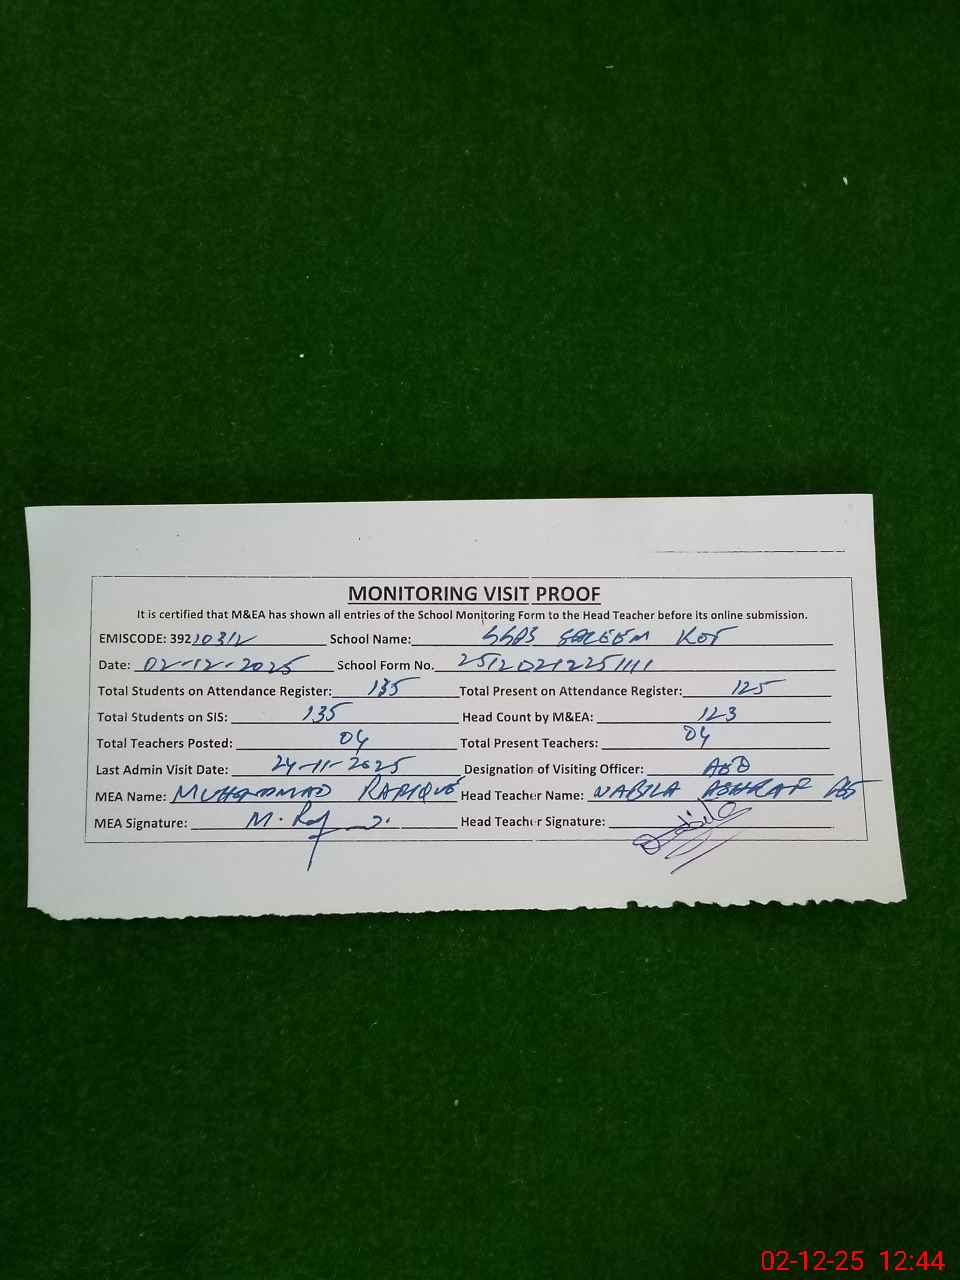 MONITORING VISIT PROOF
It is certified that M&EA has shown all entries of the School Monitoring Form to the Head Teacher before its online submission.
EMISCODE: 39210312 School Name: SALEEM KOT
Date: 02-12-2025 School Form No. 25120212251111
Total Students on Attendance Register: 135 Total Present on Attendance Register: 125
Total Students on SIS: 135 Head Count by M&EA: 123
Total Teachers Posted: 04 Total Present Teachers: 04
Last Admin Visit Date: 24-11-2025 Designation of Visiting Officer: AEO
MEA Name: MUHAMMAD RAFIQUE Head Teacher Name: NABILA ASHRAF
MEA Signature: Head Teacher Signature:
02-12-25 12:44